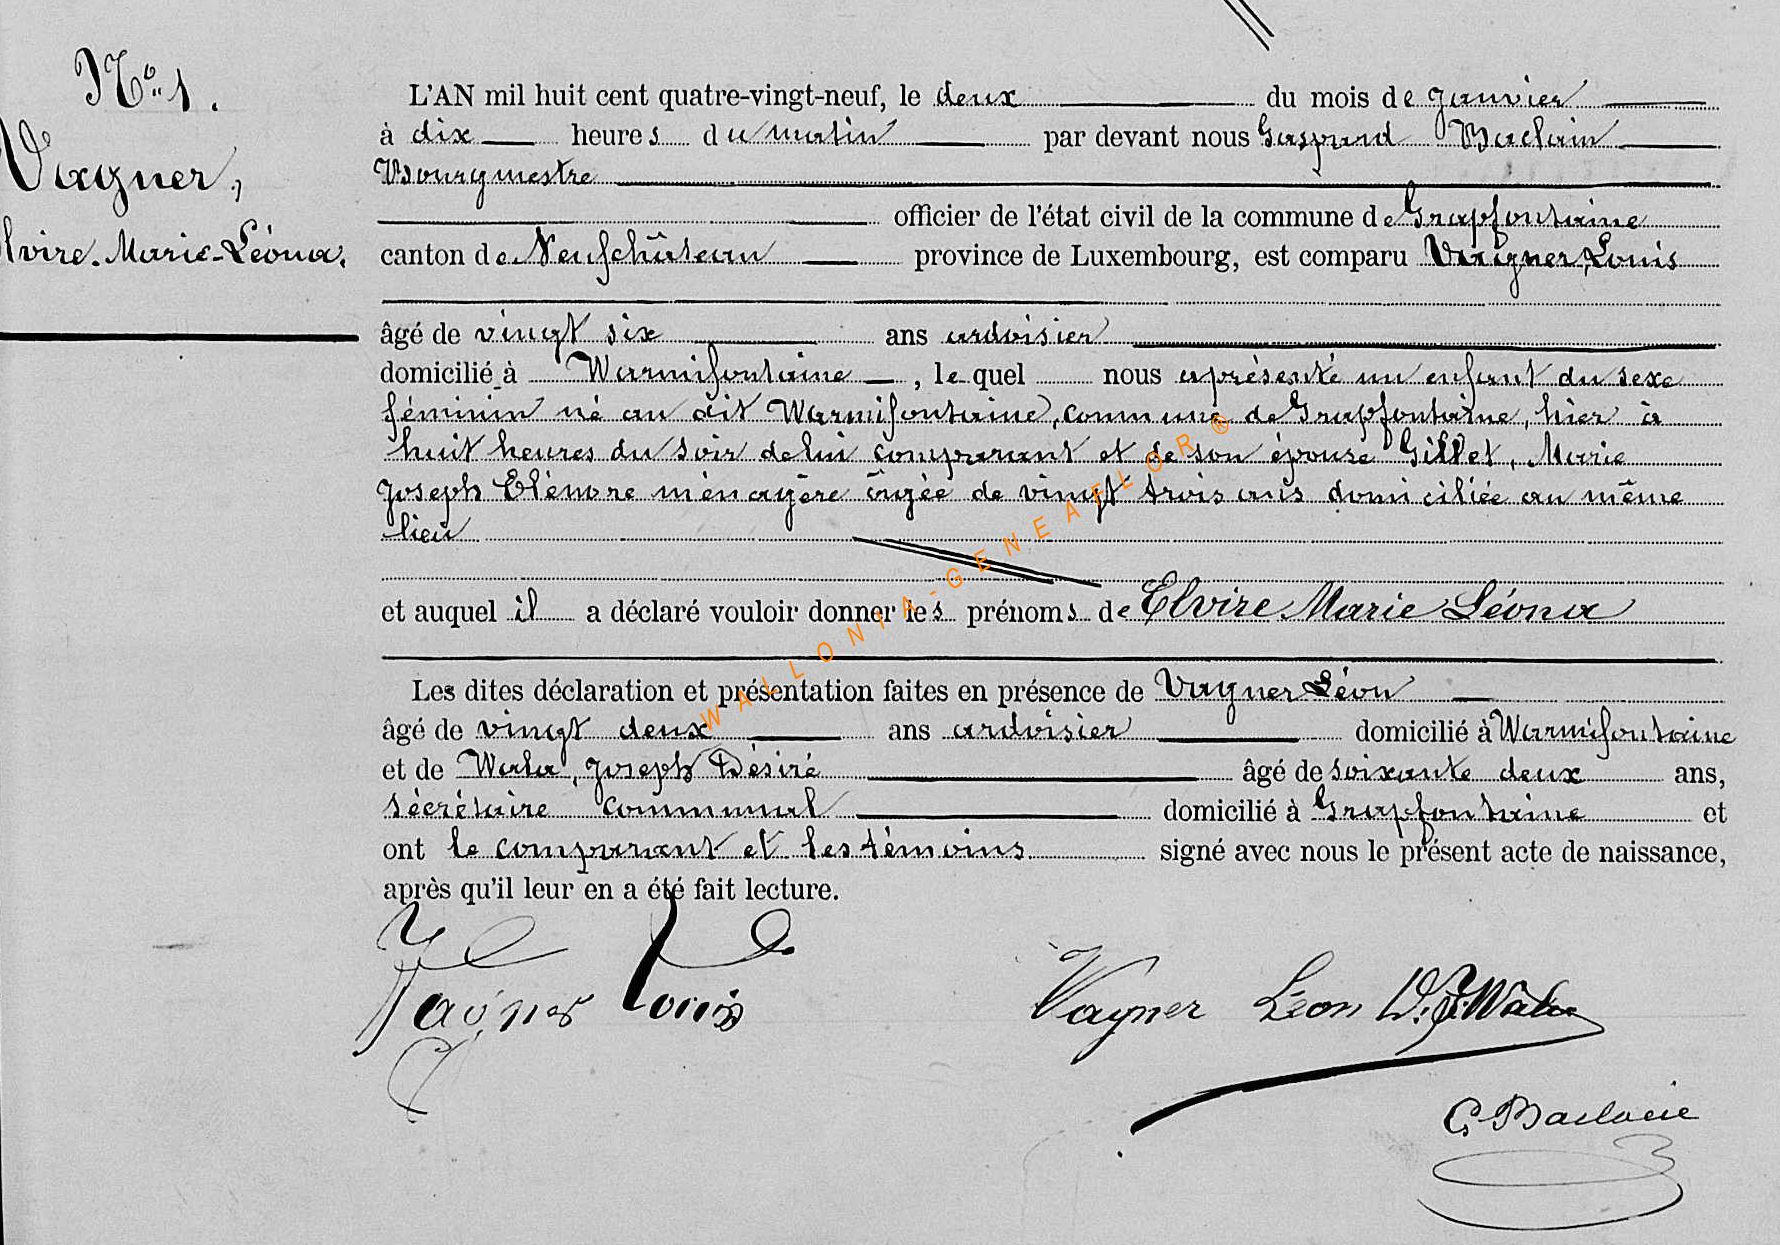 N° 1.
Vagner,
lvire. Marie-Léona.
L'AN mil huit cent quatre-vingt-neuf, le deux du mois de Janvier
à dix heures du matin par devant nous Gaspard Baclain
Bourgmestre
officier de l'état civil de la commune de Grapfontaine
canton de Neufchâteau province de Luxembourg, est comparu Vagner, Louis
âgé de vingt six ans ardoisier
domicilié à Warmifontaine, lequel nous a présenté un enfant du sexe
féminin né au dit Warmifontaine, commune de Grapfontaine, hier à
huit heures du soir de lui comparant et de son épouse Gillet, Marie
Joseph Elénore ménagère âgée de vingt trois ans domiciliée au même
lieu
et auquel il a déclaré vouloir donner les prénoms de Elvire Marie Léona
Les dites déclaration et présentation faites en présence de Vagner Léon
âgé de vingt deux ans ardoisier domicilié à Warmifontaine
et de Wala, Joseph Désiré âgé de soixante deux ans,
sécrétaire communal domicilié à Grapfontaine et
ont le comparant et les témoins signé avec nous le présent acte de naissance,
après qu'il leur en a été fait lecture.
Vagner Louis
Vagner Léon D. J. Wala
G. Baclain
WALLONIA-GENEAFLOR ®